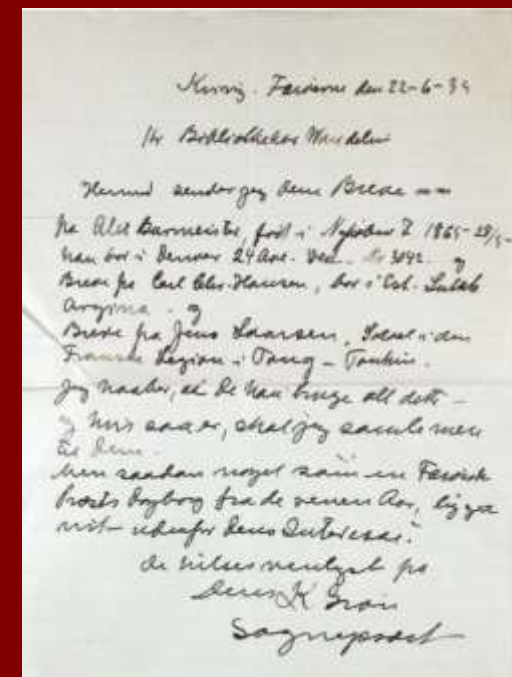 Kvivig. Færøerne den 22-6-39
Hr Bibliothekar Wandeler
Hermed sender jeg Dem Breve
fra Alex Barmeister, født i 1865-28/5-
han bor i Denver 24 Ave. 3092. og
Breve fra Carl Chr. Hansen, bor i Est.
Argina. og
Breve fra Jens Laursen, Soldat i den
Franske Legion i Tong - Tonkin.
Jeg haaber, at De kan bruge alt dette -
og hvis saa er, skal jeg samle mere
til Dem.
Men saadan noget som en Færøisk
Præsts Dagbog fra de Aar, ligger
vist udenfor Deres Interesse?
De hilses venligst fra
Deres K
Sognepræst